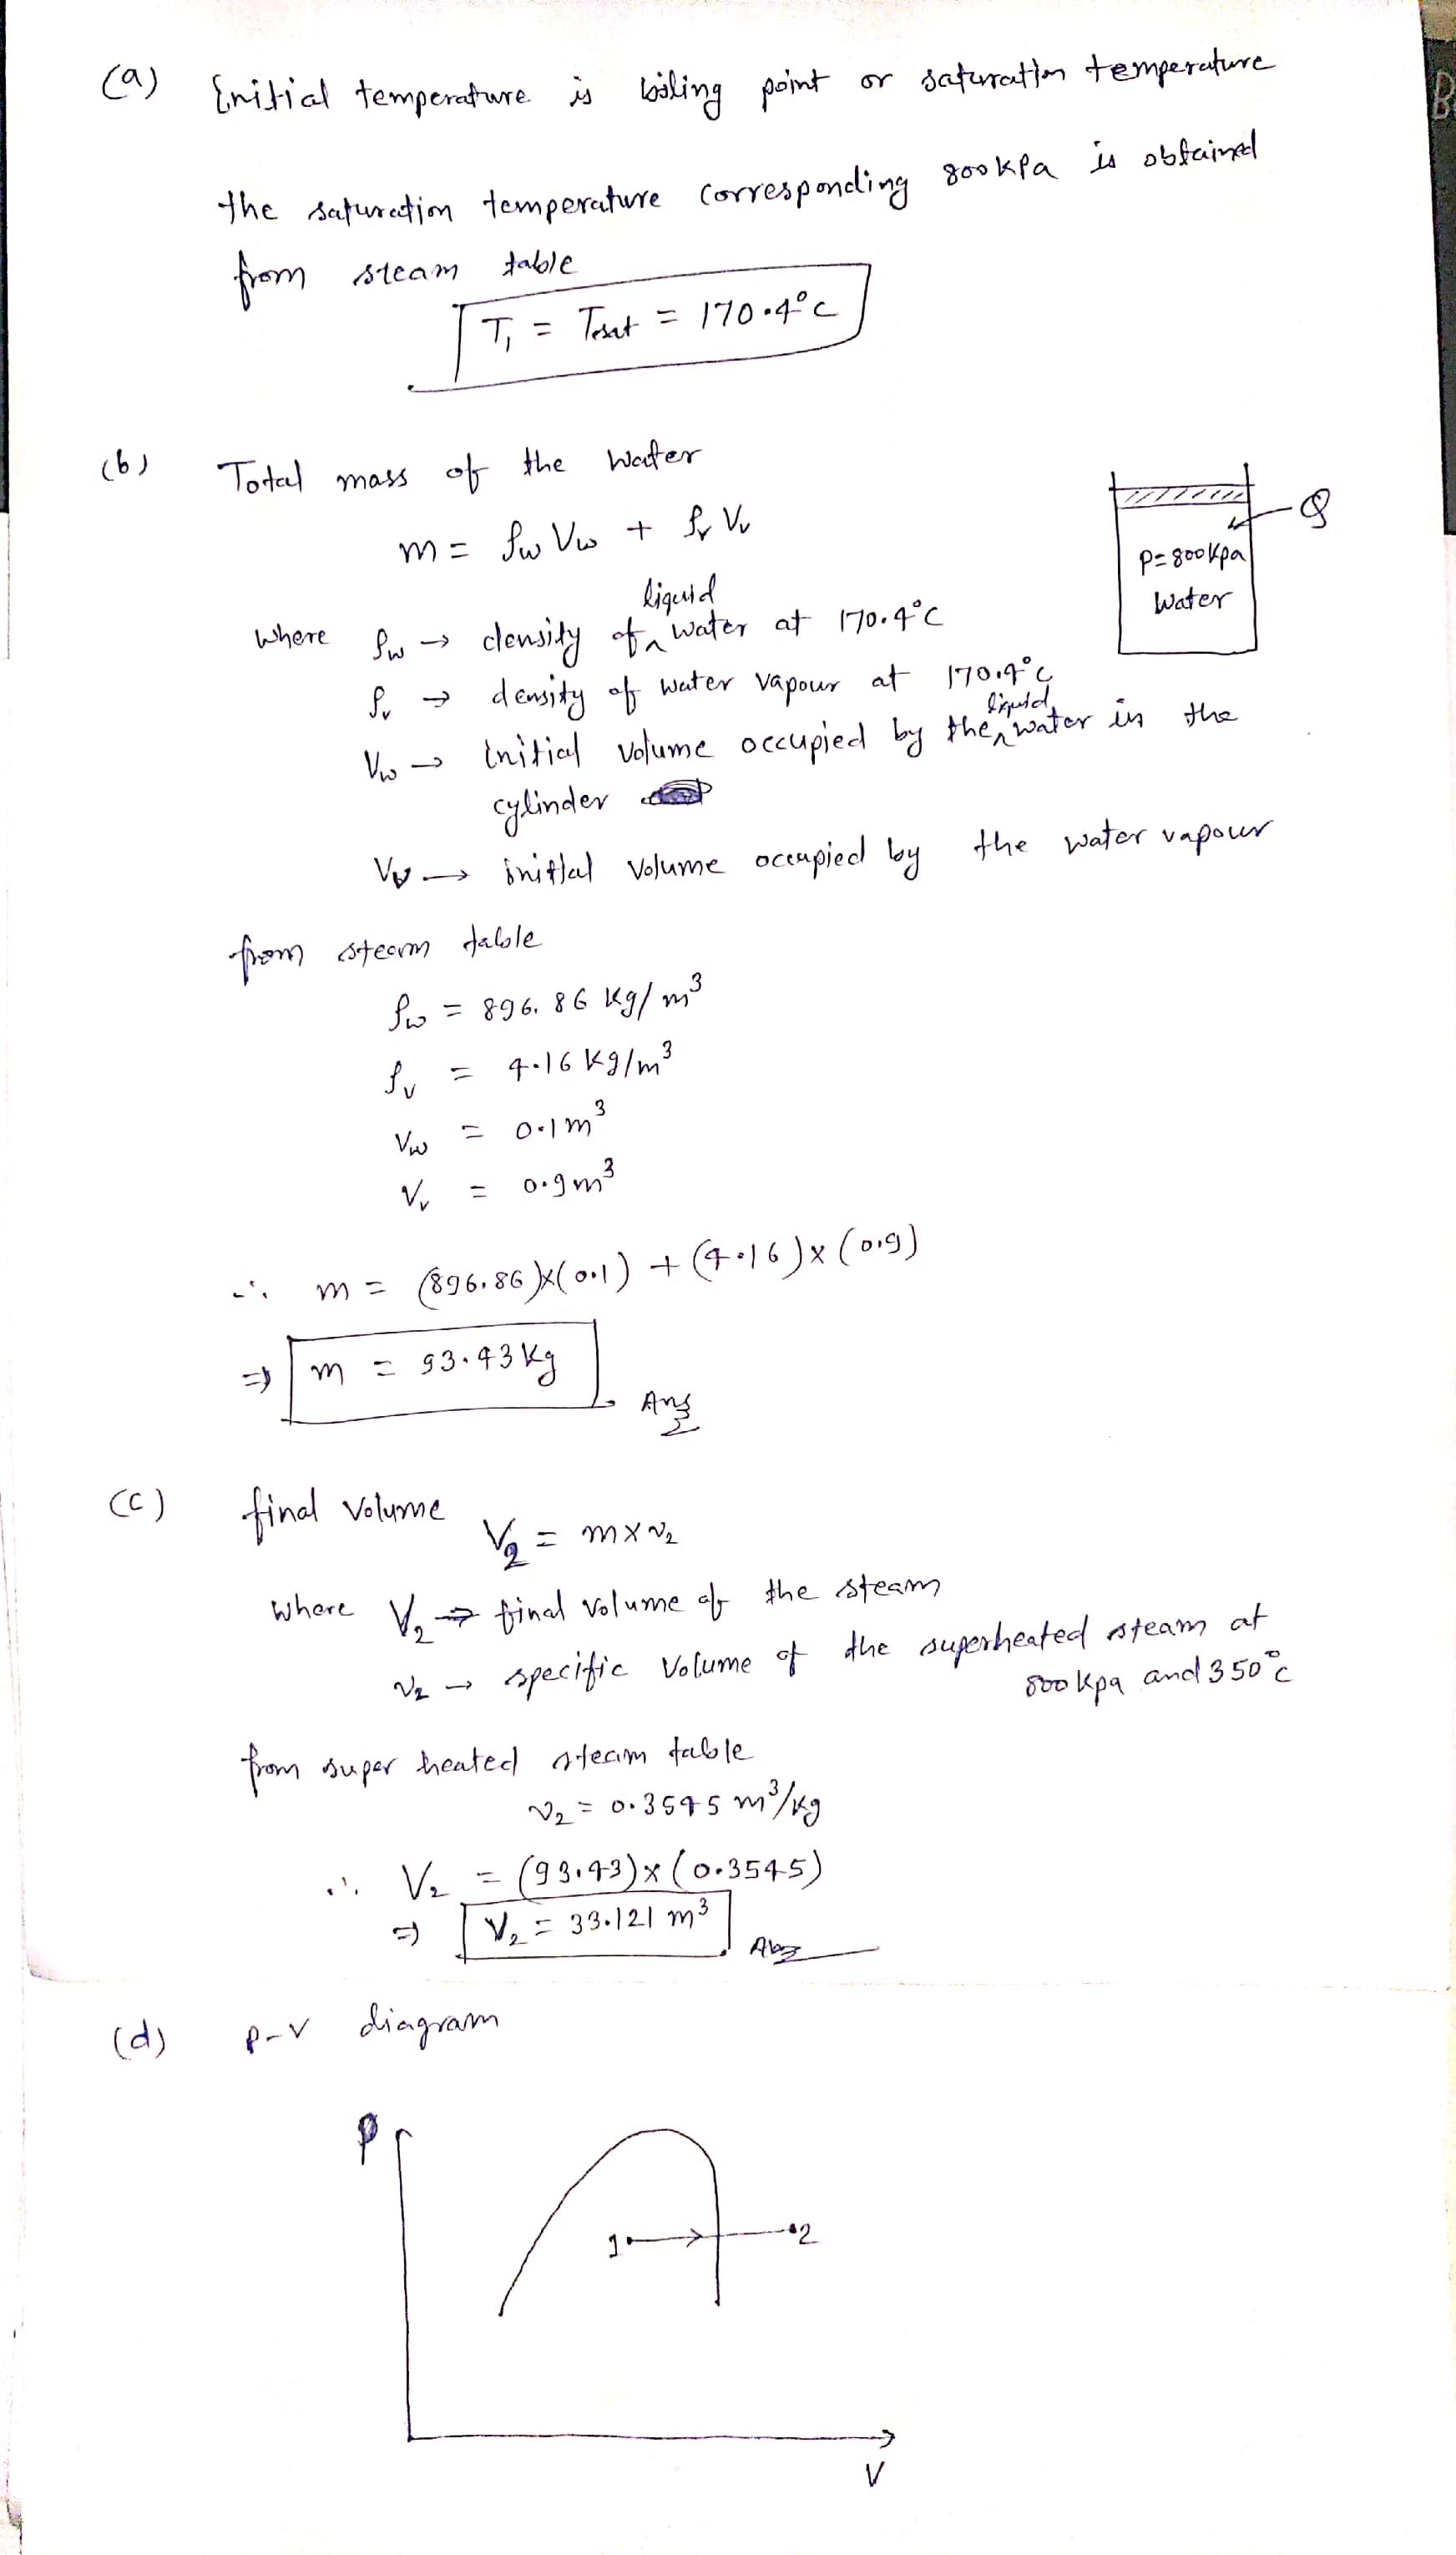 (a) Initial temperature is boiling point or saturation temperature
the saturation temperature corresponding 800 kPa is obtained
from steam table
T₁ = Tsat = 170.4°C
(b) Total mass of the water
m = ρw Vw + ρv Vv
Q
P=800kpa
Water
liquid
where ρw → density of ^ water at 170.4°C
ρv → density of water vapour at 170.4°C
liquid
Vw → initial volume occupied by the ^ water in the
cylinder
Vv → initial volume occupied by the water vapour
from steam table
ρw = 896.86 kg/m³
ρv = 4.16 kg/m³
Vw = 0.1m³
Vv = 0.9m³
∴ m = (896.86)×(0.1) + (4.16)×(0.9)
⇒ m = 93.43 kg
Ans
(c) final volume
V₂ = m×v₂
where V₂ → final volume of the steam
v₂ → specific volume of the superheated steam at
800 kpa and 350°C
from super heated steam table
v₂ = 0.3545 m³/kg
∴ V₂ = (93.43)×(0.3545)
⇒ V₂ = 33.121 m³
Ans
(d) P-V diagram
P
1 2
V